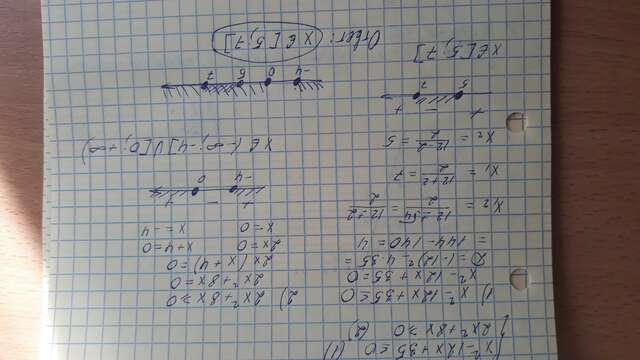 { x² - 12x + 35 ≤ 0 (1)
{ 2x² + 8x ≥ 0 (2)
1) x² - 12x + 35 ≤ 0
x² - 12x + 35 = 0
D = (-12)² - 4·35 =
= 144 - 140 = 4
x₁,₂ = (12 ± √4)/2 = (12 ± 2)/2
x₁ = (12+2)/2 = 7
x₂ = (12-2)/2 = 5
+ - +
5 7
x ∈ [5; 7]
2) 2x² + 8x ≥ 0
2x² + 8x = 0
2x (x + 4) = 0
2x = 0 x + 4 = 0
x = 0 x = -4
+ - +
-4 0
x ∈ (-∞; -4] ∪ [0; +∞)
-4 0 5 7
Ответ: x ∈ [5; 7]